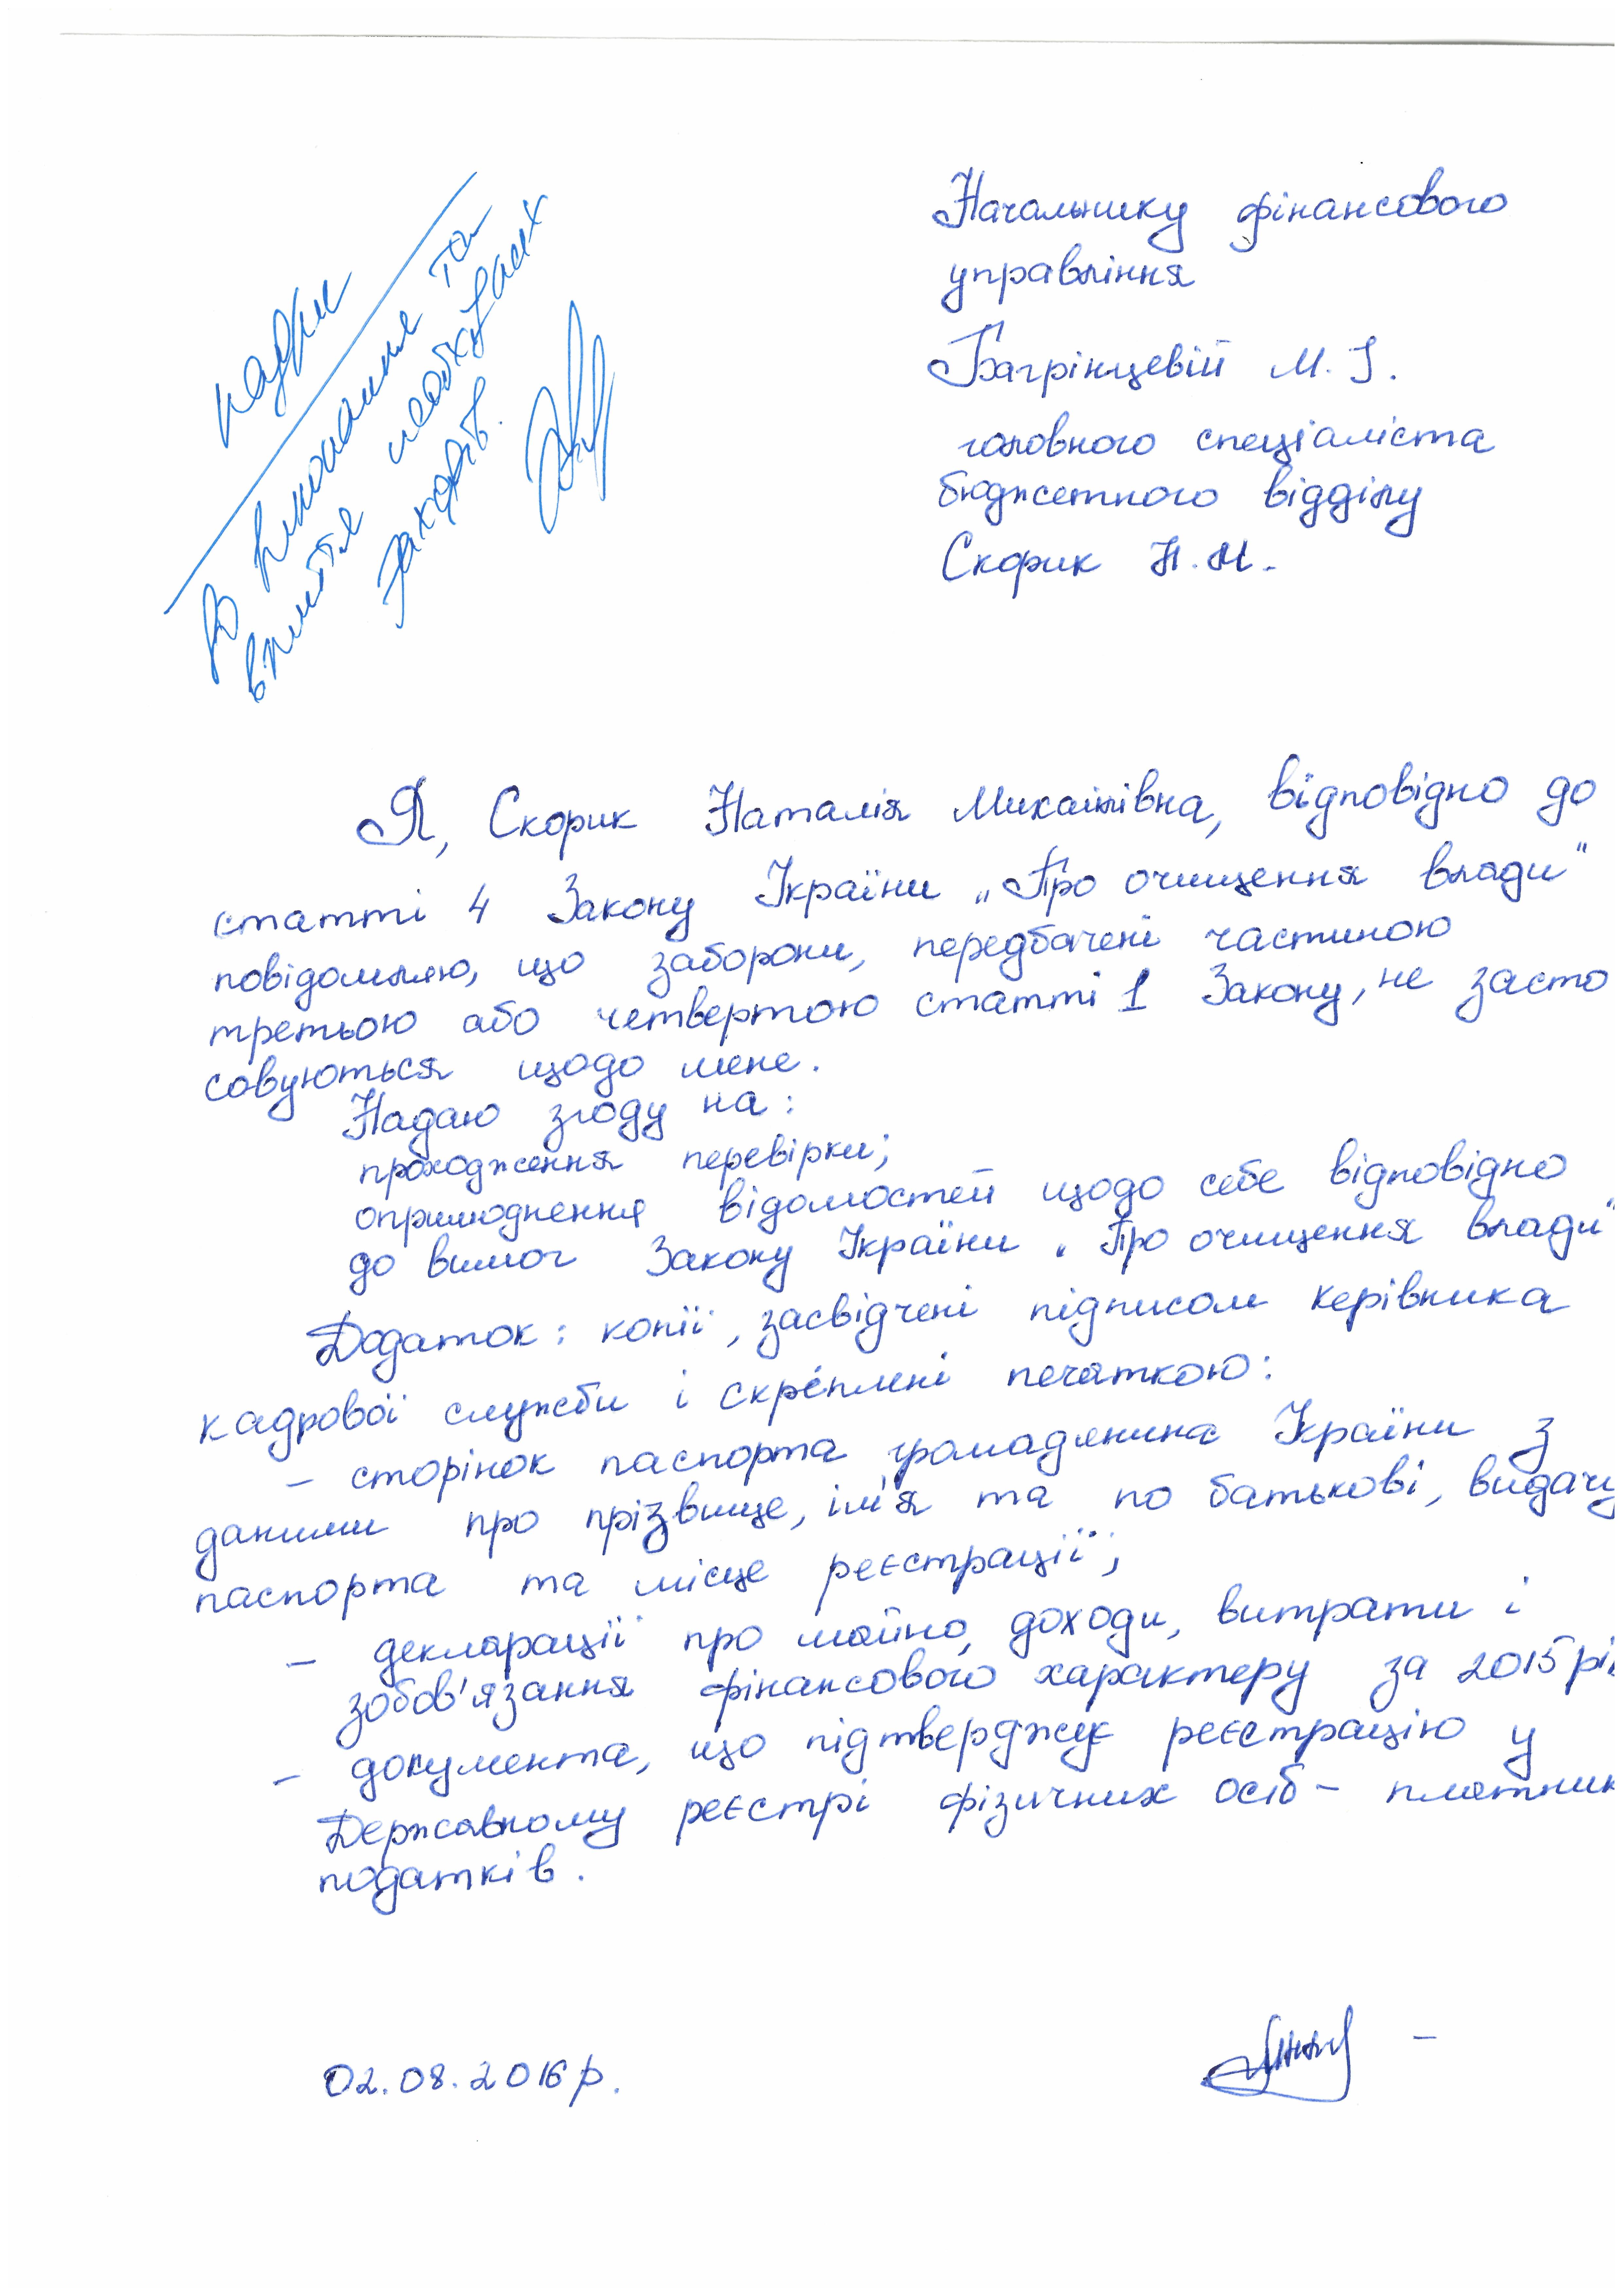 кадри
До виконання та
вжиття необхідних
заходів.
Начальнику фінансового
управління
Багрінцевій М. І.
головного спеціаліста
бюджетного відділу
Скорик Н. М.
Я, Скорик Наталія Михайлівна, відповідно до
статті 4 Закону України „Про очищення влади"
повідомляю, що заборони, передбачені частиною
третьою або четвертою статті 1 Закону, не засто
совуються щодо мене.
Надаю згоду на:
проходження перевірки;
оприлюднення відомостей щодо себе відповідно
до вимог Закону України „Про очищення влади"
Додаток: копії, засвідчені підписом керівника
кадрової служби і скріплені печаткою:
- сторінок паспорта громадянина України з
даними про прізвище, ім'я та по батькові, видачу
паспорта та місце реєстрації;
- декларації про майно, доходи, витрати і
зобов'язання фінансового характеру за 2015 рік
- документа, що підтверджує реєстрацію у
Державному реєстрі фізичних осіб - платник
податків.
02.08.2016 р.